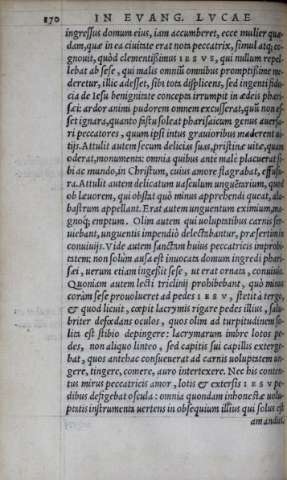 170 IN EVANG. LVCAE
ingressus domum eius, iam accumberet, ecce mulier quæ-
dam, quæ in ea ciuitate erat nom peccatrix, simul atq; co-
gnouit, quòd clementißimus IESVS, qui nullum repel-
lebat ab sese, qui malis omniũ omnibus promptißime me-
deretur, illic adesset, sibi tota displicens, sed ingenti fidu-
cia de Iesu benignitate concepta irrumpit in ædeis phari-
sæi: ardor animi pudorem omnem excusserat, quũ non es-
set ignara, quanto fastu soleat pharisaicum genus auersa-
ri peccatores, quum ipsi intus grauioribus maderent ui-
tijs. Attulit autem secum delicias suas, pristinæ uitæ, quam
oderat, monumenta: omnia quibus ante male placuerat si-
bi ac mundo, in Christum, cuius amore flagrabat, effusu-
ra. Attulit autem delicatum uasculum unguētarium, quod
ob læuorem, qui obstat quò minus apprehendi queat, ala-
bastrum appellant. Erat autem unguentum eximium, ma-
gnoq; emptum. Olim autem qui uoluptatibus carnis ser-
uiebant, unguentis impendiò delectabantur, præsertim in
conuiuijs. Vide autem sanctam huius peccatricis improbi-
tatem: non solùm ausa est inuocata domum ingredi phari-
sæi, uerum etiam ingeßit sese, ut erat ornata, conuiuio.
Quoniam autem lecti triclinij prohibebant, quò minus
coram sese prouolueret ad pedes IESV, stetit à tergo,
& quod licuit, cœpit lacrymis rigare pedes illius, salu-
briter defœdans oculos, quos olim ad turpitudinem so-
lita est stibio depingere: lacrymarum imbre lotos pe-
des, non aliquo linteo, sed capitis sui capillis exterge-
bat, quos antehac consueuerat ad carnis uoluptatem un-
gere, tingere, comere, auro intertexere. Nec his conten-
tus mirus peccatricis amor, lotis & extersis IESV pe-
dibus defigebat oscula: omnia quondam inhonestæ uolu-
ptatis instrumenta uertens in obsequium illius qui solus est
amandus.